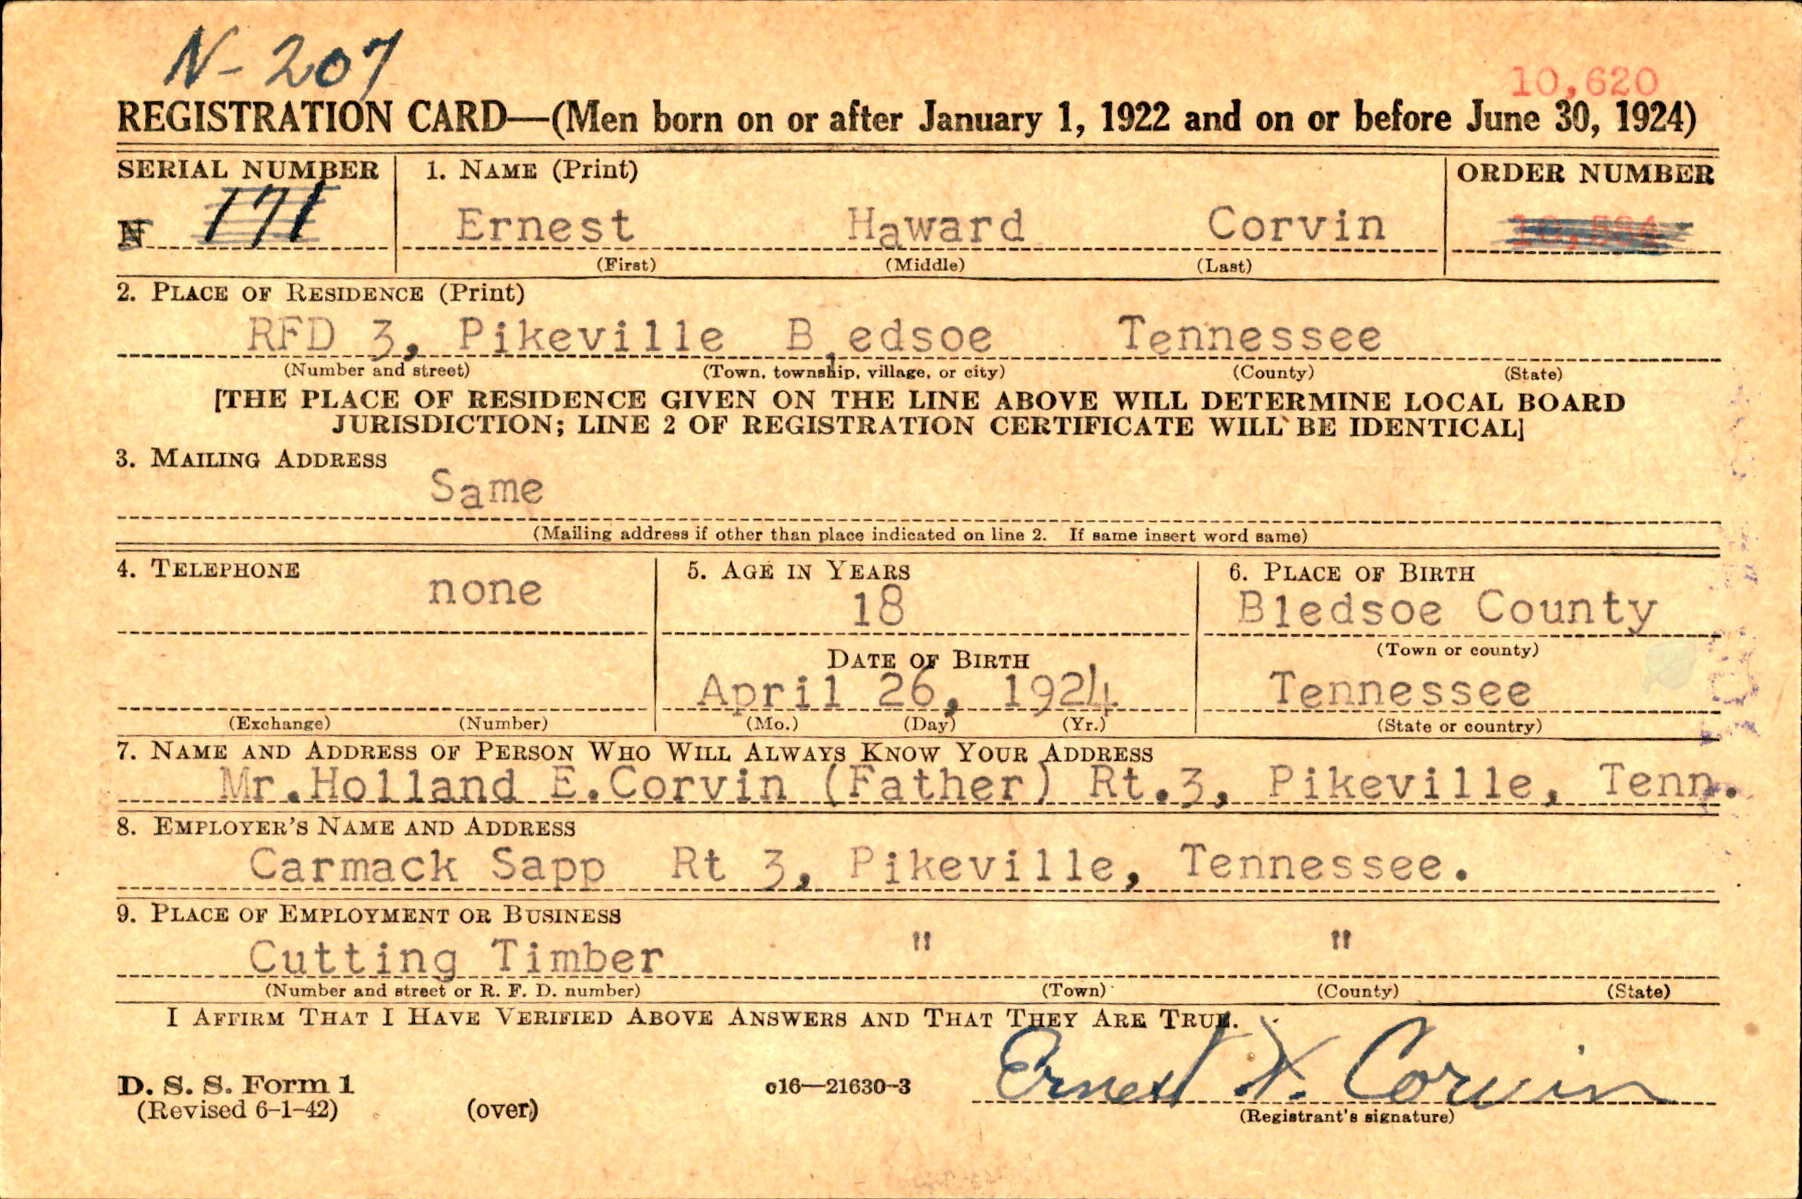 N-207
10,620
REGISTRATION CARD—(Men born on or after January 1, 1922 and on or before June 30, 1924)
SERIAL NUMBER 1. NAME (Print) ORDER NUMBER
N 171 Ernest Haward Corvin
(First) (Middle) (Last)
2. PLACE OF RESIDENCE (Print)
RFD 3, Pikeville Bledsoe Tennessee
(Number and street) (Town, township, village, or city) (County) (State)
[THE PLACE OF RESIDENCE GIVEN ON THE LINE ABOVE WILL DETERMINE LOCAL BOARD
JURISDICTION; LINE 2 OF REGISTRATION CERTIFICATE WILL BE IDENTICAL]
3. MAILING ADDRESS
Same
(Mailing address if other than place indicated on line 2. If same insert word same)
4. TELEPHONE 5. AGE IN YEARS 6. PLACE OF BIRTH
none 18 Bledsoe County
(Town or county)
DATE OF BIRTH
April 26, 1924 Tennessee
(Exchange) (Number) (Mo.) (Day) (Yr.) (State or country)
7. NAME AND ADDRESS OF PERSON WHO WILL ALWAYS KNOW YOUR ADDRESS
Mr.Holland E.Corvin (Father) Rt.3, Pikeville, Tenn.
8. EMPLOYER'S NAME AND ADDRESS
Carmack Sapp Rt 3, Pikeville, Tennessee.
9. PLACE OF EMPLOYMENT OR BUSINESS
Cutting Timber " "
(Number and street or R. F. D. number) (Town) (County) (State)
I AFFIRM THAT I HAVE VERIFIED ABOVE ANSWERS AND THAT THEY ARE TRUE.
Ernest H. Corvin
D. S. S. Form 1 c16—21630-3
(Revised 6-1-42) (over) (Registrant's signature)